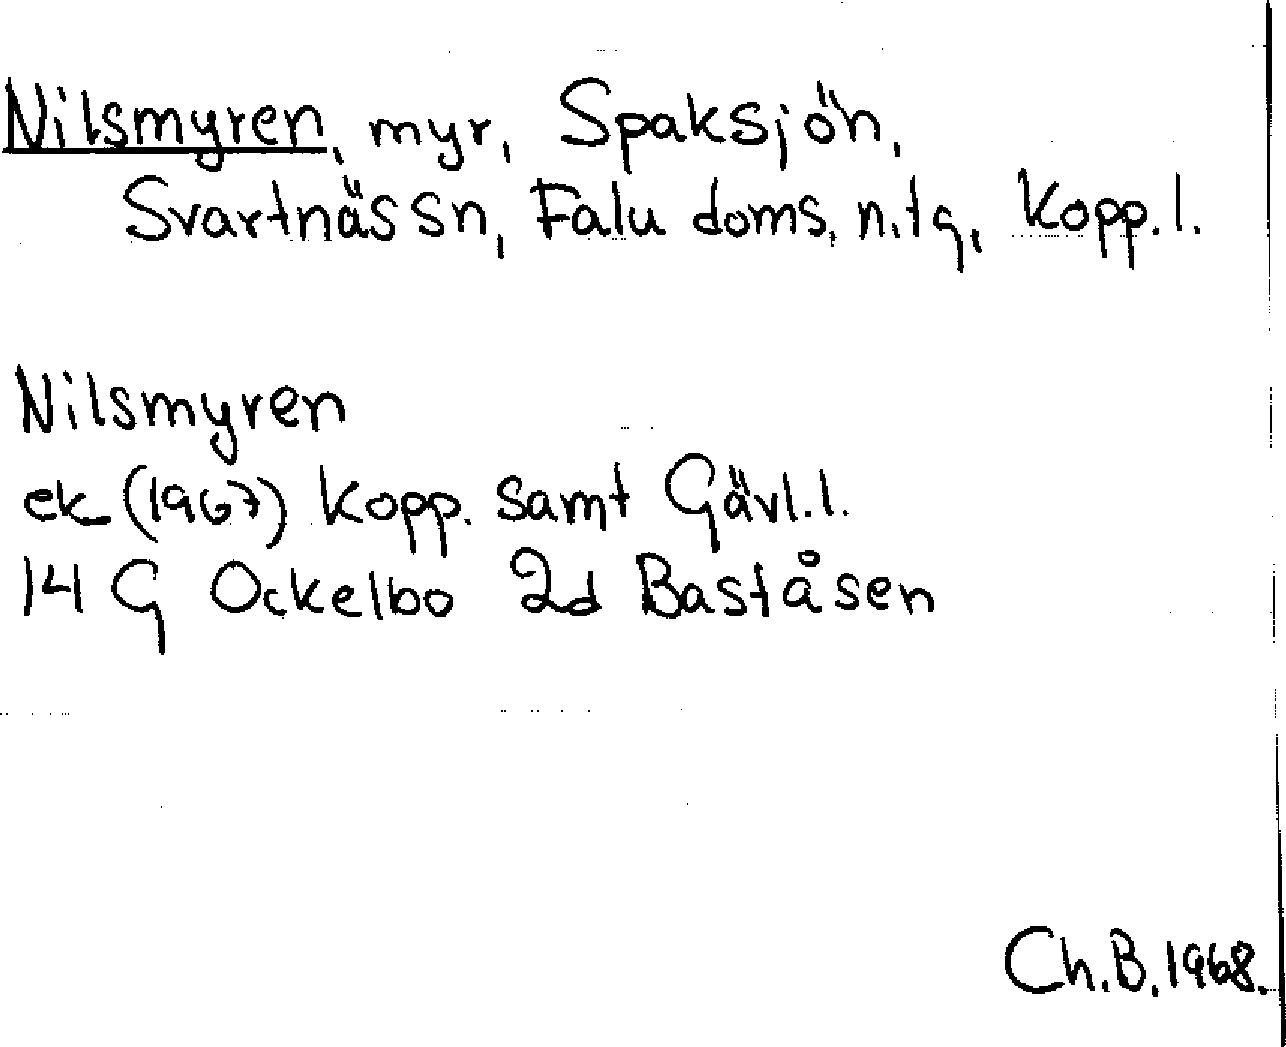 Nilsmyren, myr, Spaksjön,
Svartnäs sn, Falu doms. n. tg, Kopp. l.
Nilsmyren
ek (1967) Kopp. samt Gävl. l.
14 G Ockelbo 2d Baståsen
Ch. B. 1968.